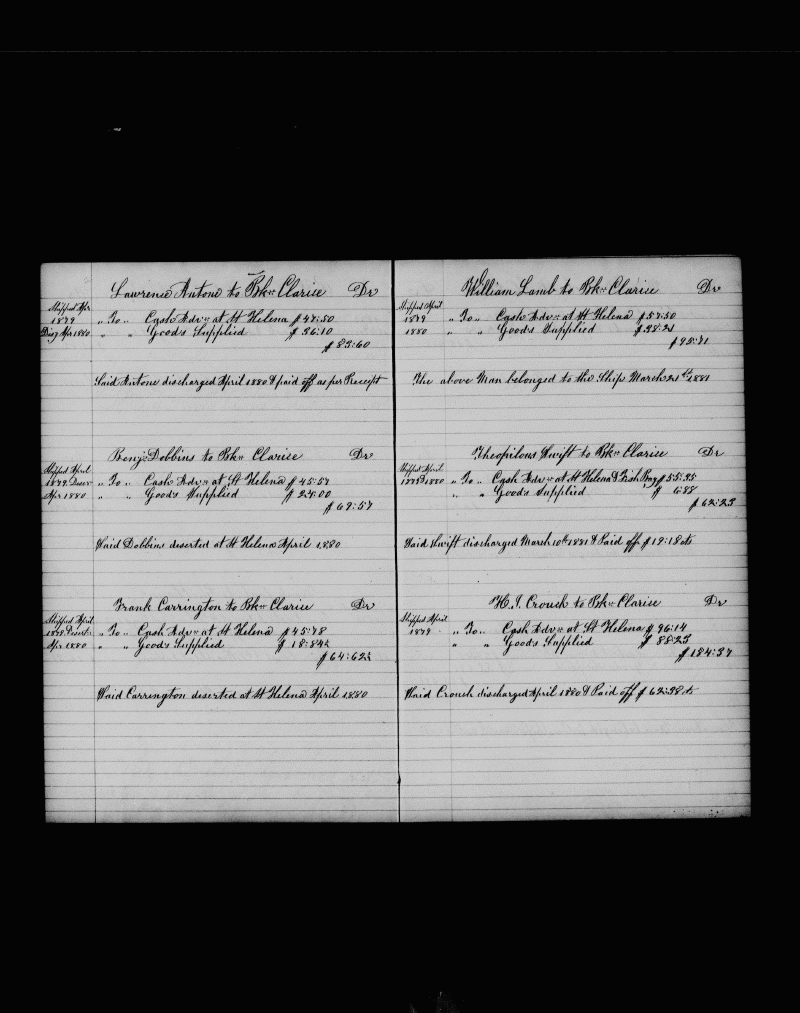 Lawrence Antone to Bkn Clarice Dr
Shipped Apr
1879 " To " Cash Advn at St Helena $ 47:50
Disg Apr 1880 " " Goods Supplied $ 36:10
$ 83:60
Said Antone discharged April 1880 & paid off as per Receipt
Benjn Dobbins to Bkn Clarice Dr
Shipped April
1879 Deser " To " Cash Advn at St Helena $ 45:57
Apr 1880 " " Goods Supplied $ 24:00
$ 69:57
Said Dobbins deserted at St Helena April 1880
Frank Carrington to Bkn Clarice Dr
Shipped April
Desert " To " Cash Advn at St Helena $ 45:78
Apr 1880 " " Goods Supplied $ 18:84½
$ 64:62½
Said Carrington deserted at St Helena April 1880
William Lamb to Bkn Clarice Dr
Shipped April
1879 " To " Cash Advn at St Helena $ 57:50
1880 " " Goods Supplied $ 38:21
$ 95:71
The above Man belonged to the Ship March 21st 1881
Theopilous Swift to Bkn Clarice Dr
Shipped April
1880 " To " Cash Advn at St Helena & Fish Bay $ 55:35
" " Goods Supplied $ 6:88
$ 62:23
Said Swift discharged March 10th 1881 & Paid off $ 19:18 cts
H. J. Crouch to Bkn Clarice Dr
Shipped April
1879 " To " Cash Advn at St Helena $ 96:14
" " Goods Supplied $ 88:23
$ 184:37
Said Crouch discharged April 1880 & Paid off $ 62:38 cts